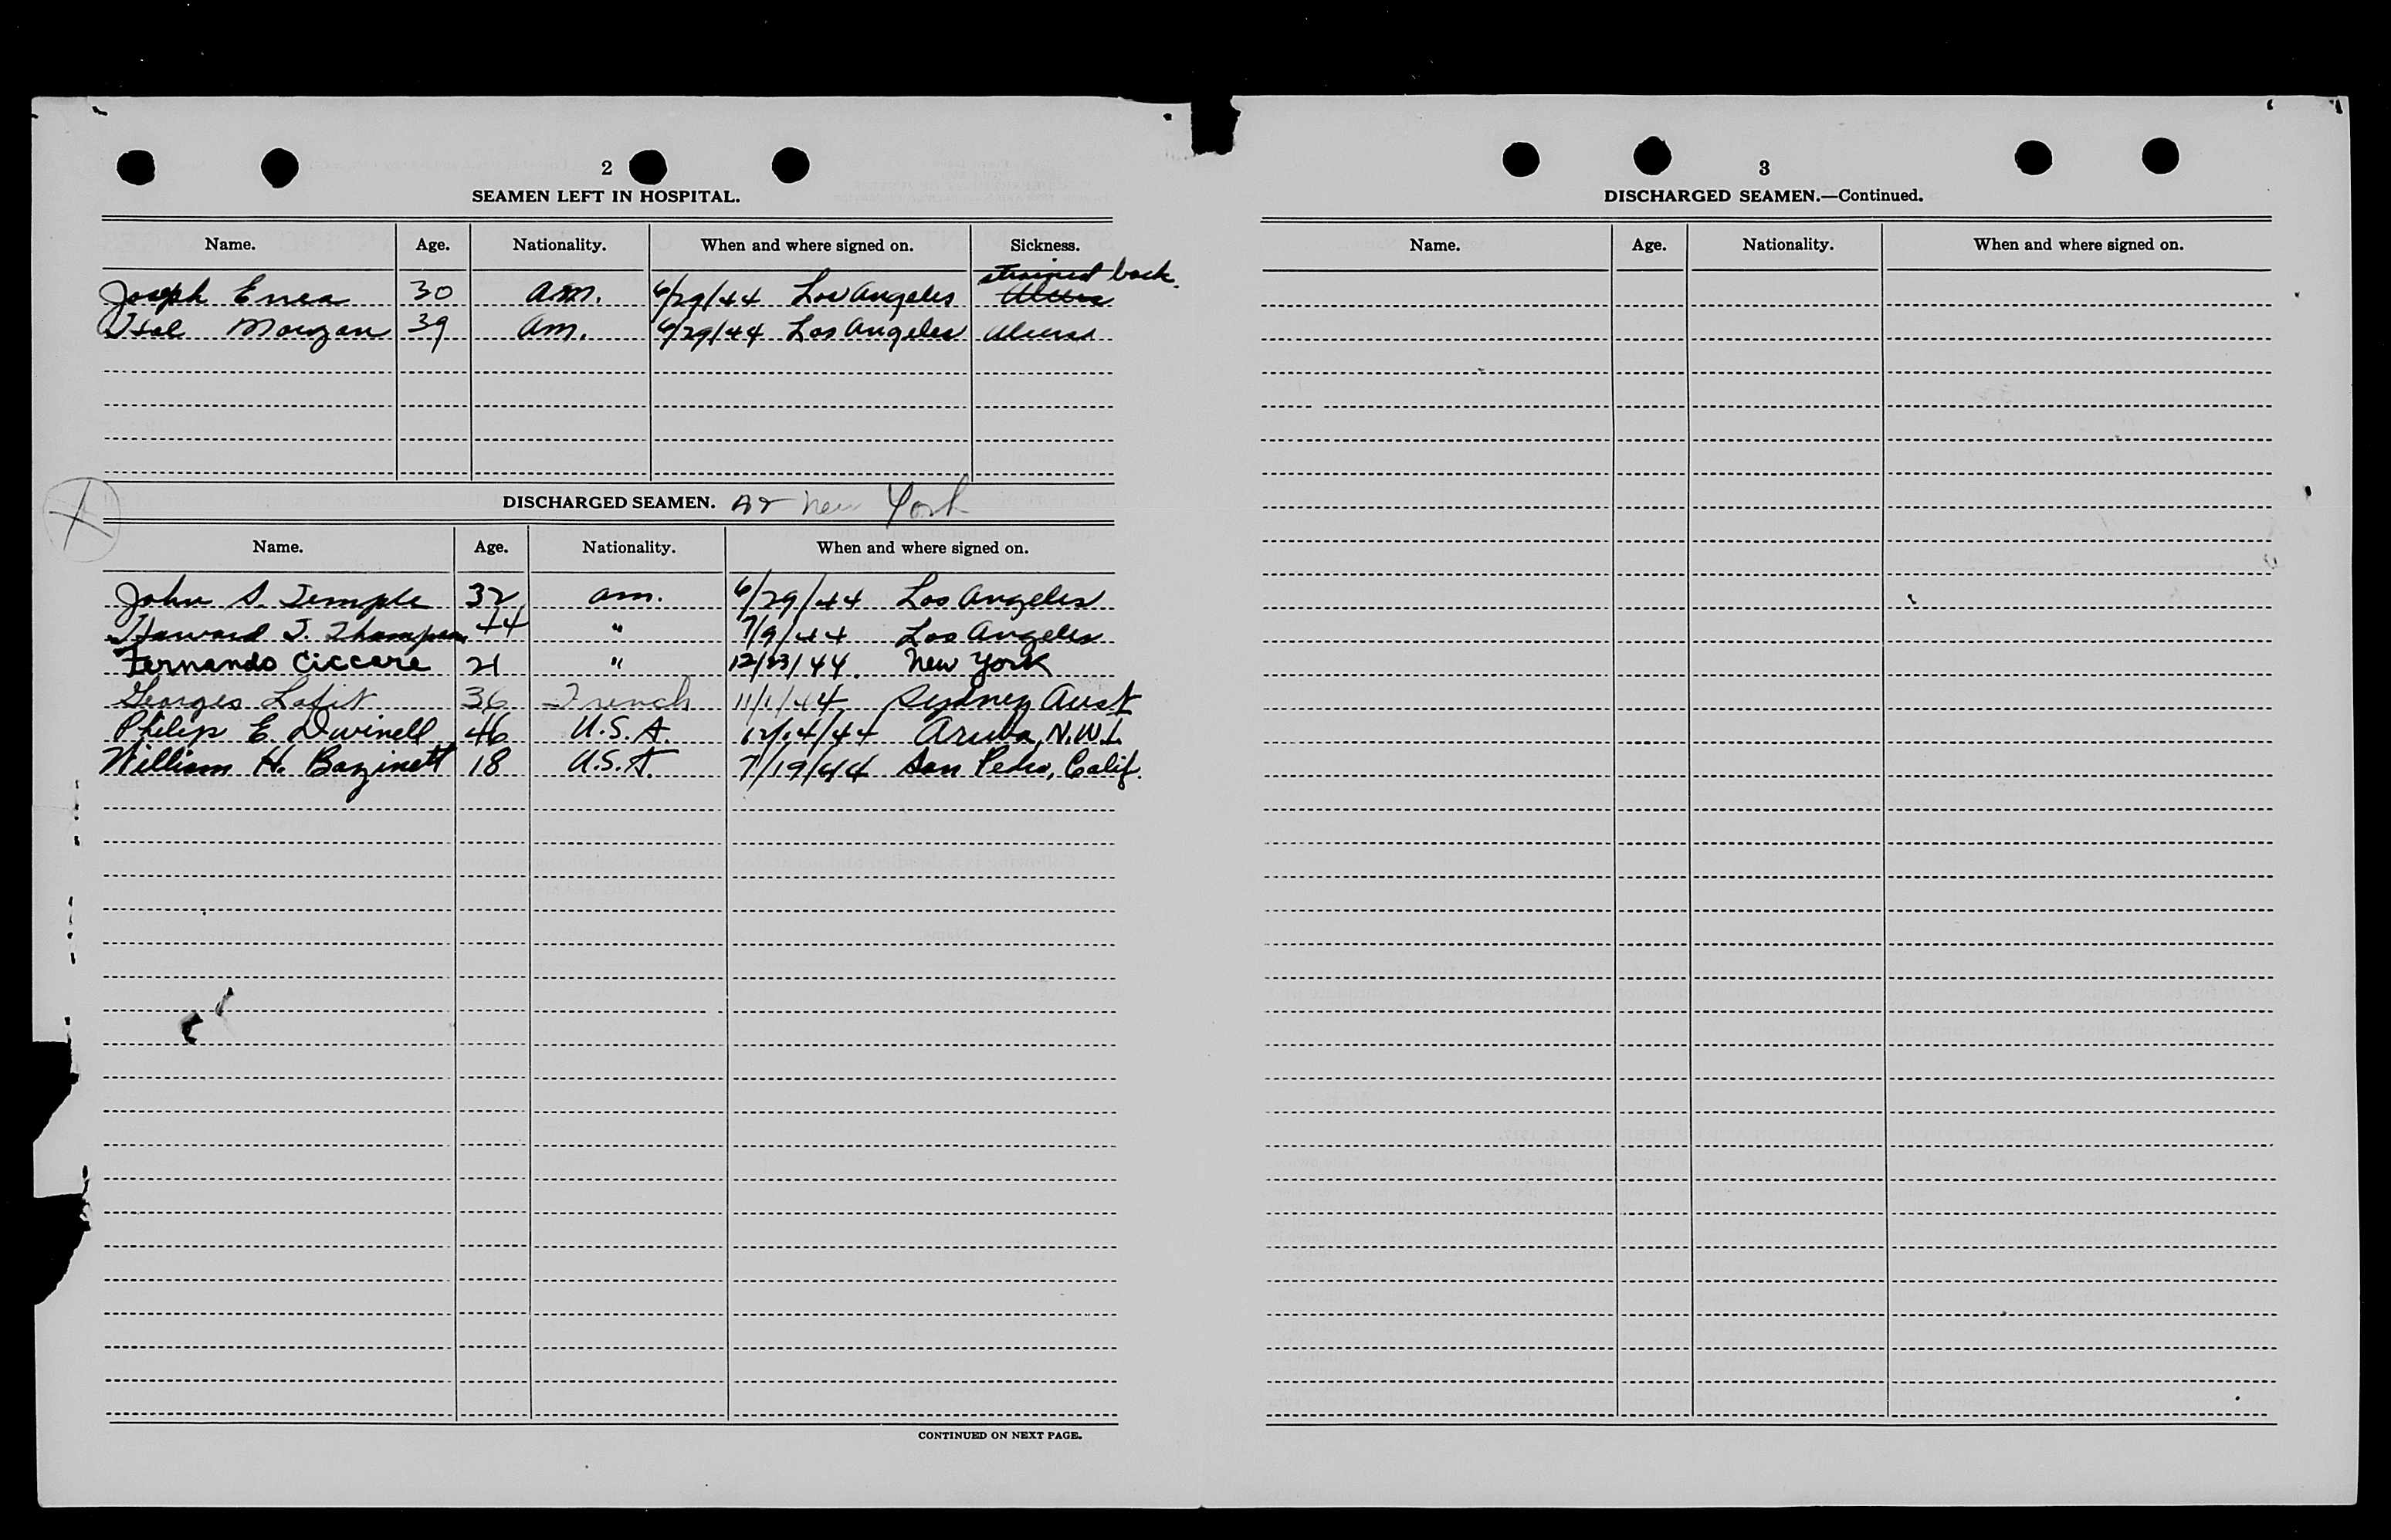 2
SEAMEN LEFT IN HOSPITAL.
Name. Age. Nationality. When and where signed on. Sickness.
strained back.
Joseph Enea 30 Am. 6/29/44 Los Angeles
Morgan 39 Am. 6/29/44 Los Angeles
DISCHARGED SEAMEN. At New York
Name. Age. Nationality. When and where signed on.
John S. Temple 32 Am. 6/29/44 Los Angeles
Howard J. Thompson 44 " 7/9/44 Los Angeles
Fernando Ciccere 21 " 12/23/44. New York
Georges Lafit 36 French 11/1/44 Sydney Aust
Philip E. Dwinell 46 U.S.A. 12/14/44 Aruba, N.W.I.
William H. Bazinett 18 U.S.A. 7/19/44 San Pedro, Calif.
CONTINUED ON NEXT PAGE.
3
DISCHARGED SEAMEN.—Continued.
Name. Age. Nationality. When and where signed on.